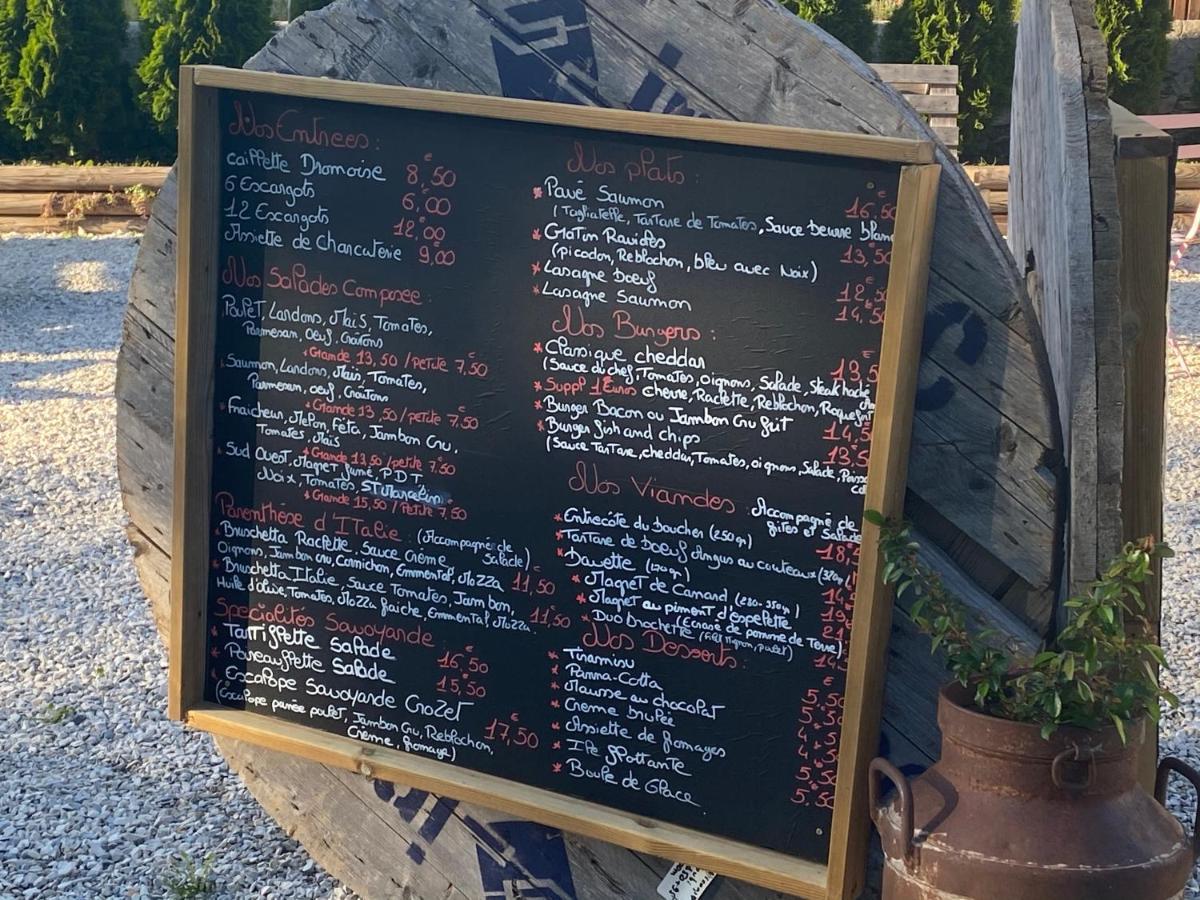 Nos Entrees :
caillette Dromoise 8€,50
6 Escargots 6€,00
12 Escargots 12€,00
Assiette de Charcuterie 9€,00
Nos Salades Composee :
Poulet, Lardons, Maïs, Tomates,
Parmesan, Oeuf, Croutons
Grande 13,50 / Petite 7€,50
Saumon, Lardons, Maïs, Tomates,
Parmesan, oeuf, Croutons
Grande 13,50 / petite 7€,50
Fraicheur, Melon, Féta, Jambon Cru,
Tomates, Maïs
Grande 13,50 / petite 7€,50
Sud Ouest, Magret fumé, P.D.T,
Noix, Tomates, ST Marcellin
Grande 15,50 / Petite 7,50
Parenthèse d'Italie : (Accompagnée de
Salade)
* Bruschetta Raclette, Sauce Crème
Oignons, Jambon cru, Cornichon, Emmental, Mozza 11€,50
* Bruschetta Italie, Sauce Tomates, Jambon,
Huile d'olive, Tomates, Mozza fraiche, Emmental, Mozza. 11€,50
Spécialités Savoyarde
* Tartiflette Salade 16€,50
* Ravauflette Salade 15€,50
* Escalope Savoyarde Crozet
(Escalope panée poulet, Jambon Cru, Reblochon, 17€,50
Crème, fromage)
Nos plats :
* Pavé Saumon 16,50
(Tagliatelle, Tartare de Tomates, Sauce beurre blanc
* Gratin Ravioles 13,50
(picodon, Reblochon, bleu avec Noix)
* Lasagne boeuf 12,50
* Lasagne Saumon 14,50
Nos Burgers :
* Classique cheddar 13,5
(Sauce du chef, Tomates, oignons, Salade, steak haché
* Suppl 1 Euros chèvre, Raclette, Reblochon, Roquefort
* Burger Bacon ou Jambon Cru grit 14,5
* Burger fish and chips 13,5
(Sauce Tartare, cheddar, Tomates, oignons, Salade, Poisson
Nos Viandes : Accompagné de
frites et Salade
* Entrecôte du boucher (250gr)
* Tartare de boeuf Angus au couteaux
* Bavette
* Magret de Canard
* Magret au piment d'espelette
(Ecrasé de pomme de Terre)
* Duo brochette (Filet Mignon, poulet)
Nos Desserts :
* Tiramisu
* Panna-Cotta
* Mousse au chocolat
* Crème brulée
* Assiette de fromages
* Ile flottante
* Boule de Glace